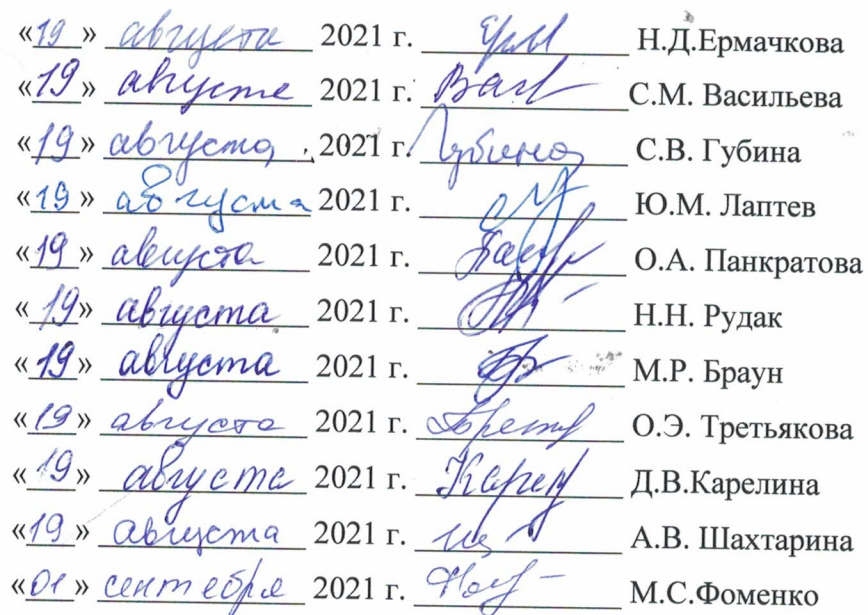 «19» августа 2021 г. Н.Д.Ермачкова
«19» августа 2021 г. С.М. Васильева
«19» августа 2021 г. Губина С.В. Губина
«19» августа 2021 г. Ю.М. Лаптев
«19» августа 2021 г. О.А. Панкратова
«19» августа 2021 г. Н.Н. Рудак
«19» августа 2021 г. М.Р. Браун
«19» августа 2021 г. О.Э. Третьякова
«19» августа 2021 г. Д.В.Карелина
«19» августа 2021 г. А.В. Шахтарина
«01» сентября 2021 г. М.С.Фоменко